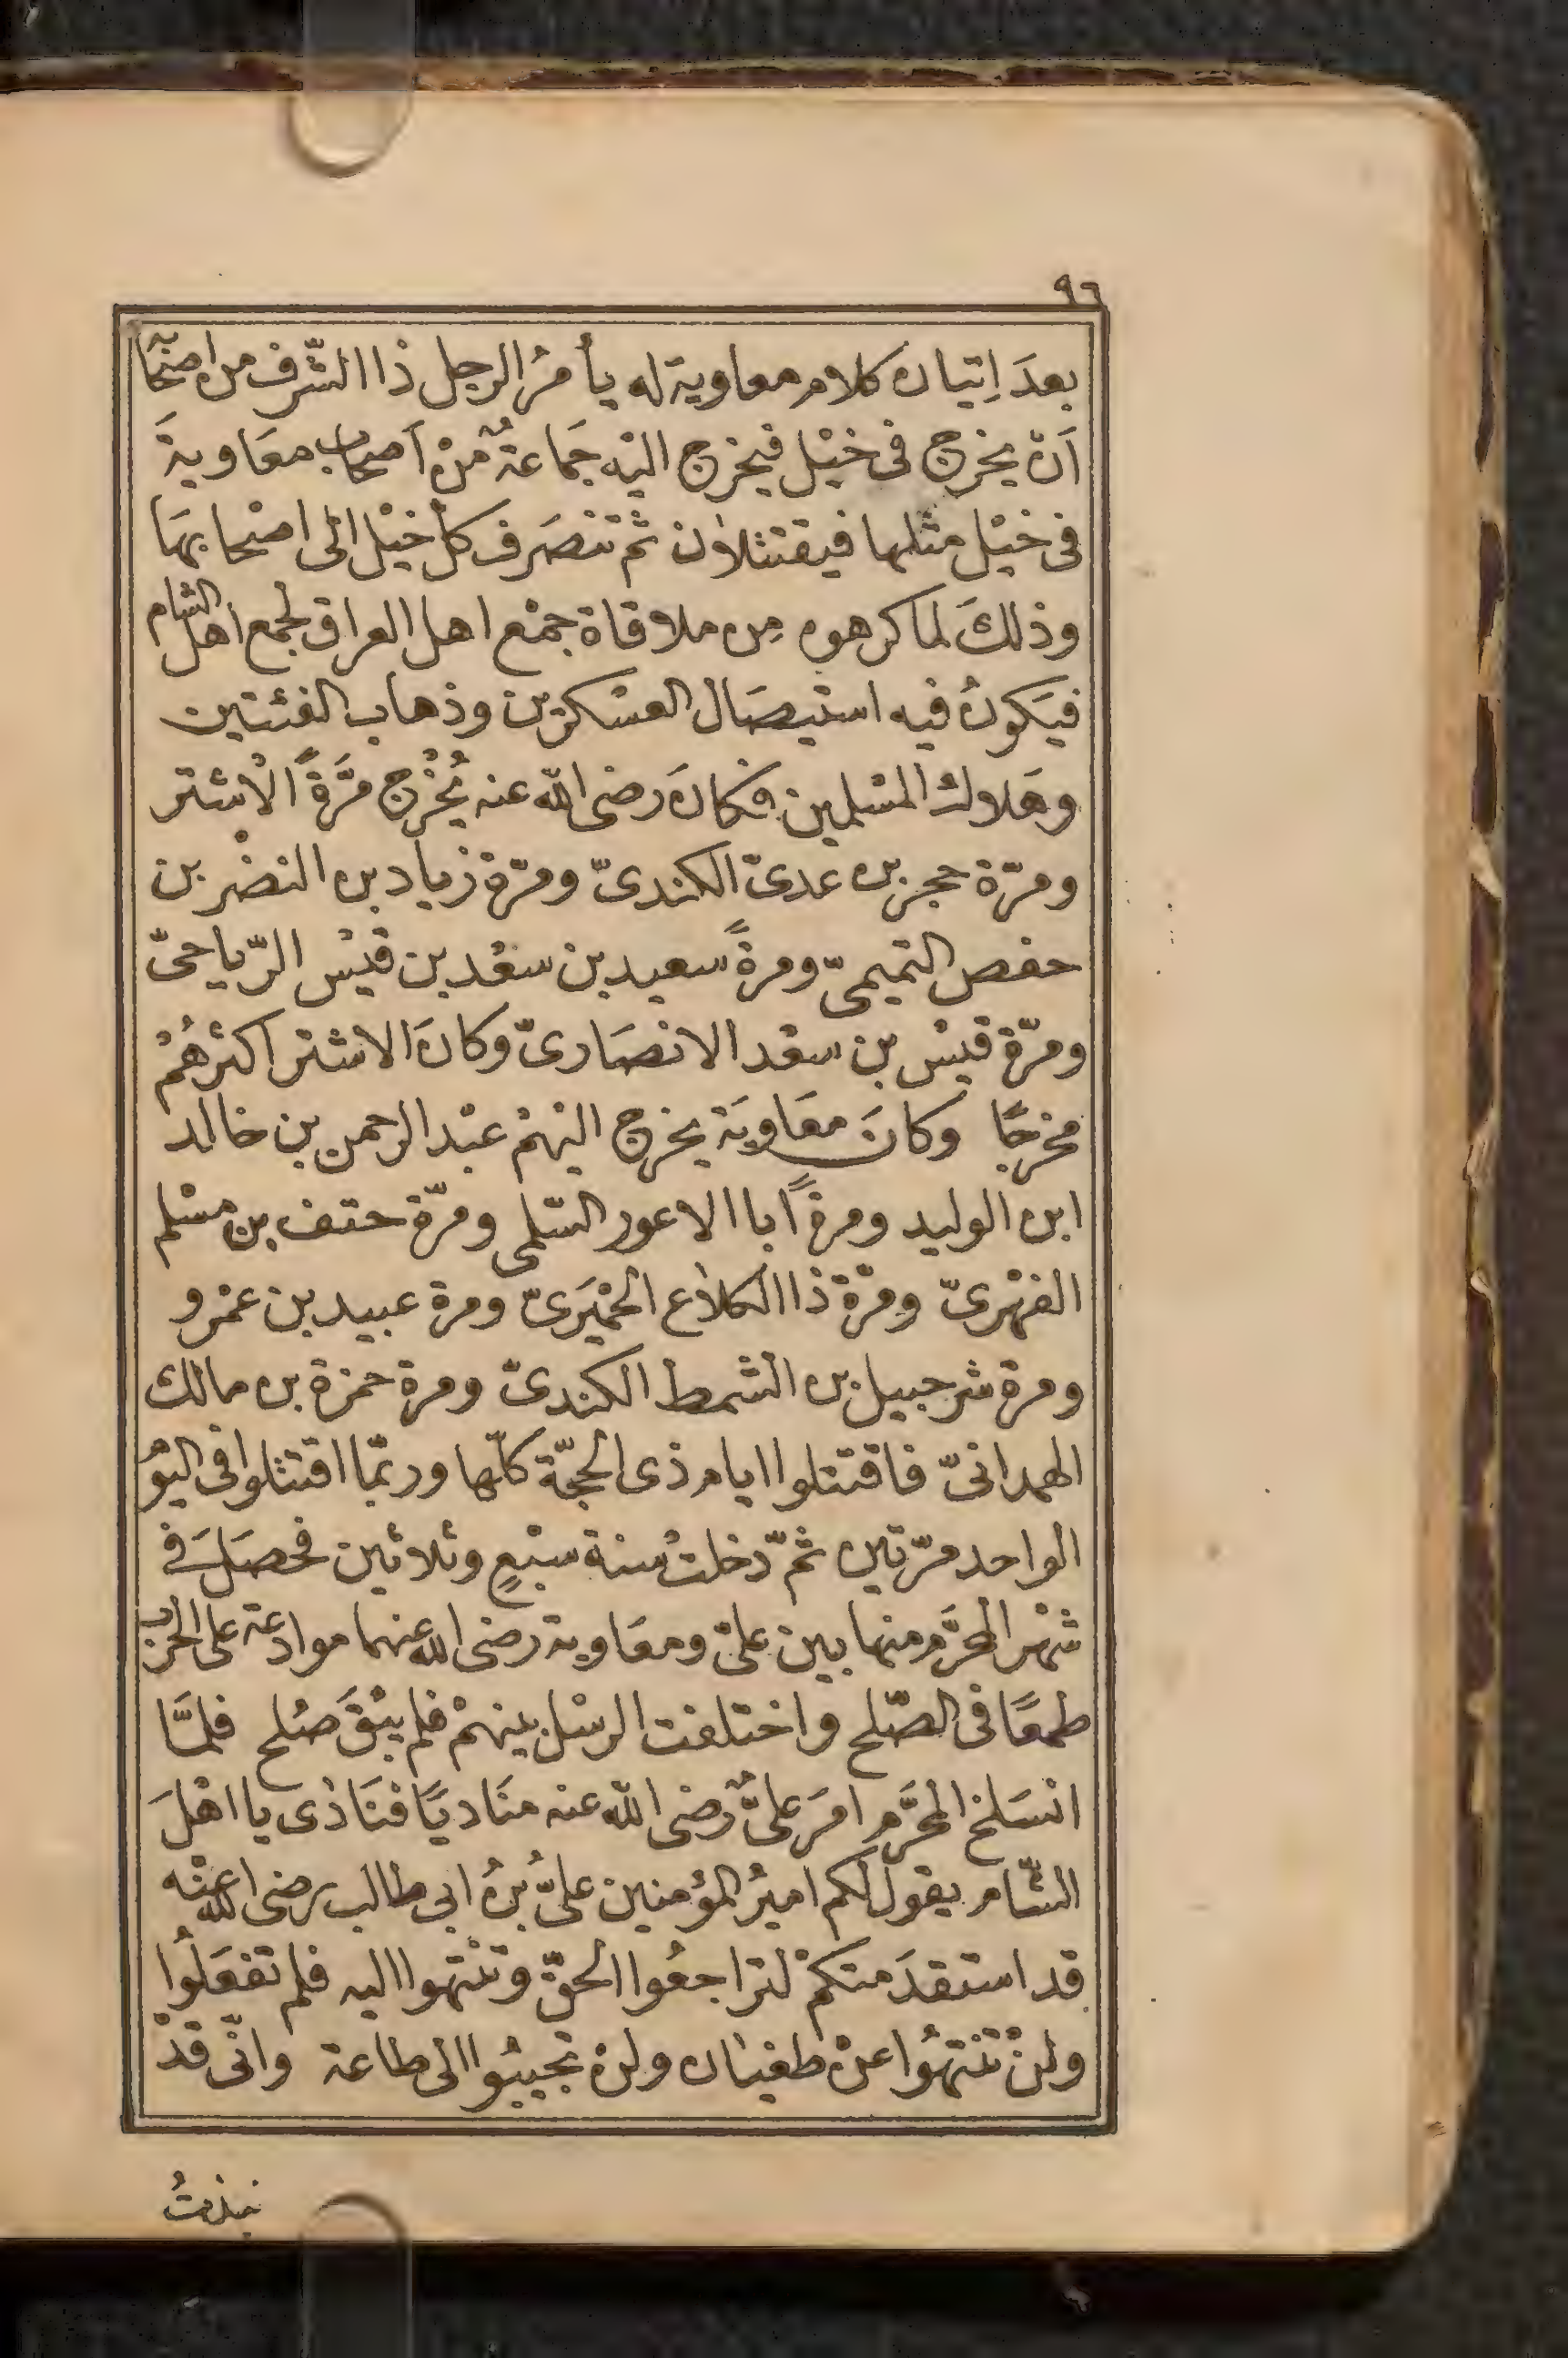 ٩٦
بعدَ اِتيان كلام معاوية له يأمرُ الرجل ذا الشّرف من اصْحابه
اَنْ يخرج فى خيْل فيخرج اليْه جَماعةٌ مْن اَصحاب معَاويةَ
فى خيْل مثلها فيقتتلان ثم تنصَرف كل خيْل الى اصْحابهَا
وذلكَ لما كرهوه مِن ملاقاة جمْع اهل العراق لجمع اهل الشام
فيَكونُ فيه استيصَال العسْكرين وذهاب الفئتين
وهَلاك المسْلمين فكانَ رضى الله عنه يُخْرج مَرَّةً الاشتر
ومرّة حجر بن عدىّ الكندىّ ومرّة زياد بن النضْر بن
حفص التميمىّ ومرةً سعيد بن سعْد بن قيْس الرّياحىّ
ومرّة قيْس بن سعْد الانصَارىّ وكانَ الاشتر اكثرهُمْ
مخرجًا وكانَ معَاويَة يخرج اليْهمْ عبْد الرحمن بن خالد
ابن الوليد ومرةً ابا الاعور السّلمى ومرّة حتف بن مسْلم
الفهْرىّ ومَرّة ذا الكلاع الحمْيَرىّ ومرة عبيد بن عمْرو
ومرة شرجبيل بن الشمط الكندىّ ومرة حمزة بن مالك
الهمدانىّ فاقتتلوا ايام ذى الحجّة كلّها وربّما اقتتلوا فى اليوْ
الواحد مرّتين ثمّ دخلتْ سنة سبْعٍ وثلاثين فحصَلَ فى
شهْر المحَرَّم منها بين علىّ ومعَاوية رضى الله عنهما موادعة على الحرْب
طمعًا فى الصّلح واختلفت الرسْل بينهمْ فلم يبْقَ صلح فلمَّا
انسَلخ المحرَّم امَرَ علىٌّ رضى الله عنه منَاديًا فنَادَى يا اهْلَ
الشّام يقول لكم اميرُ المؤمنين علىُّ بنُ ابى طالب رضى الله عنْه
قد استقدَمتكمْ لتراجعُوا الحقّ وتنْتهوا اليه فلم تفعَلُوا
ولنْ تنْتهُوا عنْ طغيَان ولنْ تجيبُوا الى طاعة وانّى قدْ
نبذتُ